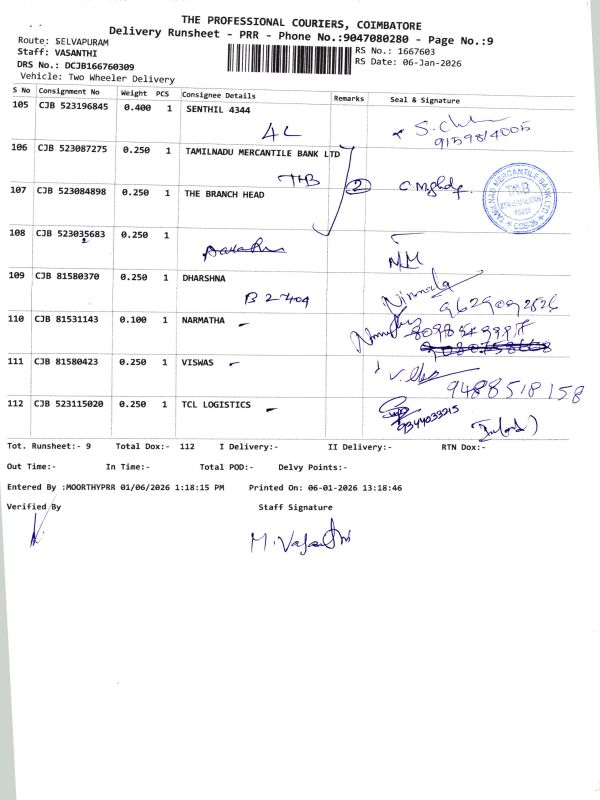 THE PROFESSIONAL COURIERS, COIMBATORE
Delivery Runsheet - PRR - Phone No.:9047080280 - Page No.:9
Route: SELVAPURAM
Staff: VASANTHI
RS No.: 1667603
DRS No.: DCJB166760309
RS Date: 06-Jan-2026
Vehicle: Two Wheeler Delivery
S No Consignment No Weight PCS Consignee Details Remarks Seal & Signature
105 CJB 523196845 0.400 1 SENTHIL 4344
4L
9159814005
106 CJB 523087275 0.250 1 TAMILNADU MERCANTILE BANK LTD
TMB 2
107 CJB 523084898 0.250 1 THE BRANCH HEAD
108 CJB 523035683 0.250 1
109 CJB 81580370 0.250 1 DHARSHNA
B 2 409
Nirmala
9629092826
110 CJB 81531143 0.100 1 NARMATHA -
111 CJB 81580423 0.250 1 VISWAS -
9488518158
112 CJB 523115020 0.250 1 TCL LOGISTICS -
9344033215
Tot. Runsheet:- 9 Total Dox:- 112 I Delivery:- II Delivery:- RTN Dox:-
Out Time:- In Time:- Total POD:- Delvy Points:-
Entered By :MOORTHYPRR 01/06/2026 1:18:15 PM Printed On: 06-01-2026 13:18:46
Verified By Staff Signature
M. Vasanthi